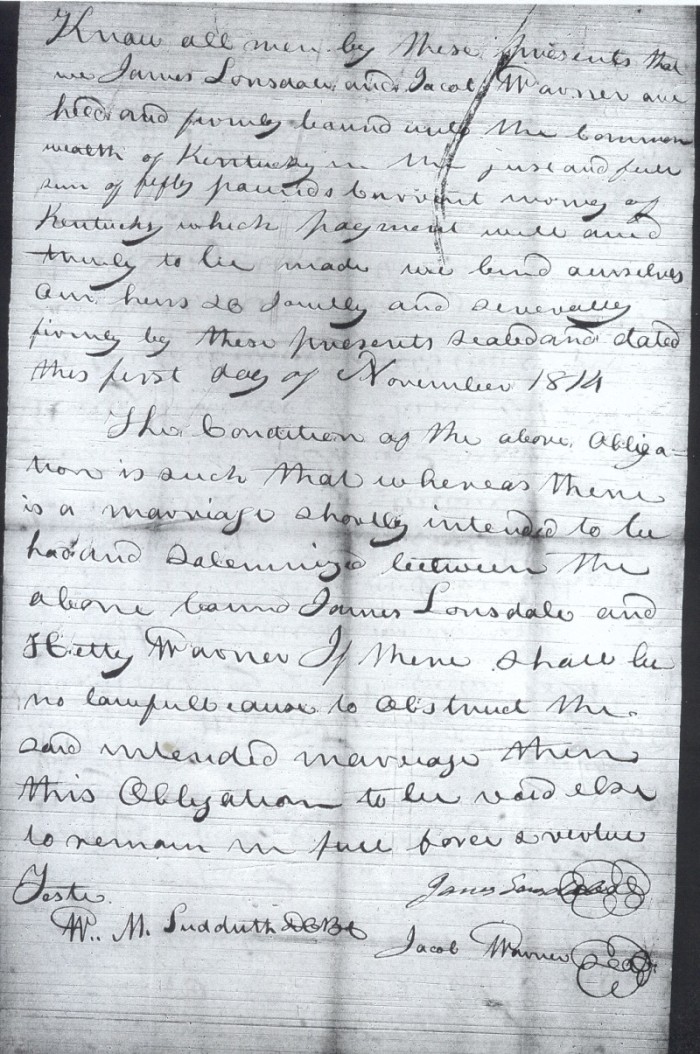 Know all men by these presents that
we James Lonsdale and Jacob Warner are
held and firmly bound unto the Common
wealth of Kentucky in the just and full
sum of fifty pounds Current money of
Kentucky which payment well and
truely to be made we bind ourselves
our heirs &c Jointly and severally
firmly by these presents sealed and dated
this first day of November 1814
The Condition of the above Obliga-
tion is such that whereas there
is a marriage shortly intended to be
had and Solemnized between the
above bound James Lonsdale and
Hetty Warner If there shall be
no lawfull cause to Obstruct the
said intended marriage then
this Obligation to be void else
to remain in full force & virtue
Teste
James Lonsdale Seal
W. M. Sudduth DCBC
Jacob Warner Seal